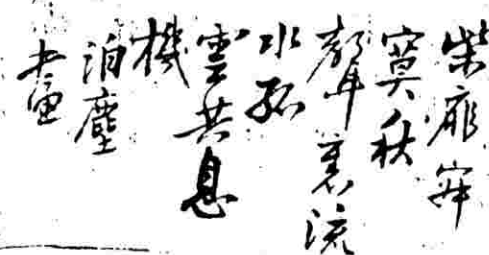 柴扉寂
寞秋
聲裏流
水孤
雲共息
機
泊塵
畫